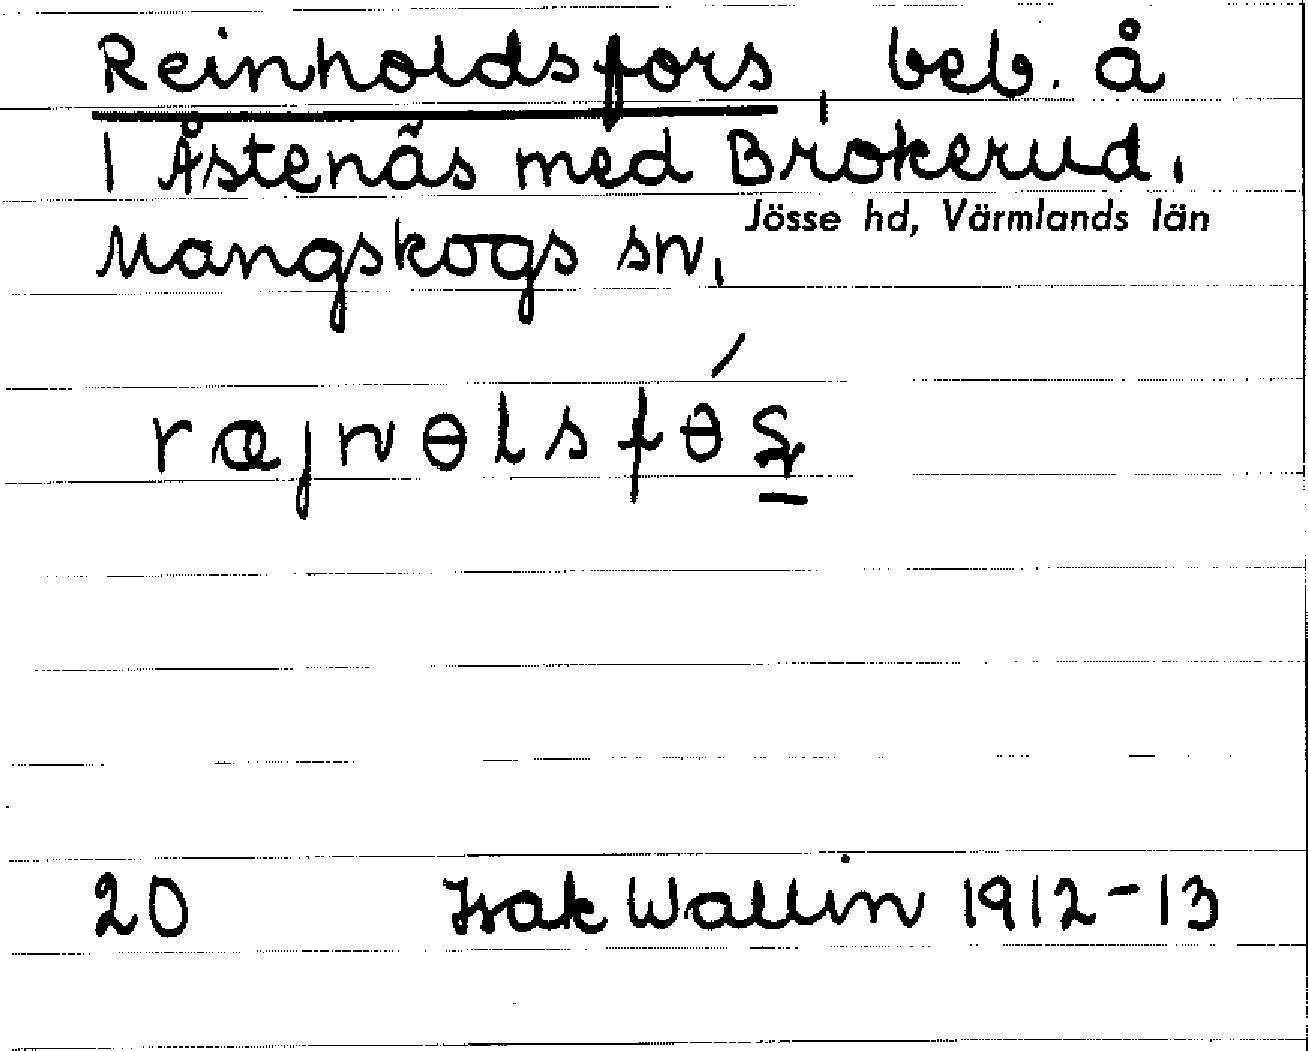 Reinholdsfors, beb. å
1 Åstenäs med Brokerud,
Jösse hd, Värmlands län
Mangskogs sn,
ræjnɵlsfɵ́ʂ
20 Isak Wallin 1912-13